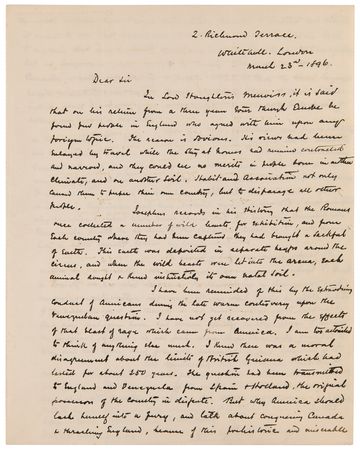 2. Richmond Terrace,
Whitehall. London
March 23rd - 1896.
Dear Sir
In Lord Houghton's Memoirs, it is said
that on his return from a three years tour through Europe he
found few people in England who agreed with him upon any
foreign topic. The reason is obvious. His views had been
enlarged by travel while the stay at homes had remained
and narrow, and they could see no merits in people born in other
Climates, and on another Soil. Habit and Association not only
caused them to prefer their own country, but to disparage all other
people.
Josephus records in his History that the Romans
once collected a number of wild beasts, for exhibition, and from
Each country where they had been captured they had brought a
of Earth. This Earth was deposited in separate heaps around the
Circus, and when the wild beasts were let into the arena, each
animal sought & found instinctively its own natal soil.
I have been reminded of this by the Extraordinary
Conduct of Americans during the late warm controversy upon the
Venezuelan question. I have not yet recovered from the effects
of that blast of rage which came from America. I am too astounded
to think of anything else much. I knew there was a
disagreement about the limits of British Guiana which had
lasted for about 250 years. The question had been transmitted
to England and Venezuela from Spain & Holland. the original
possessors of the Country in dispute. But why America should
lash herself into a fury, and talk about conquering Canada
& thrashing England, because of this prehistoric and miserable